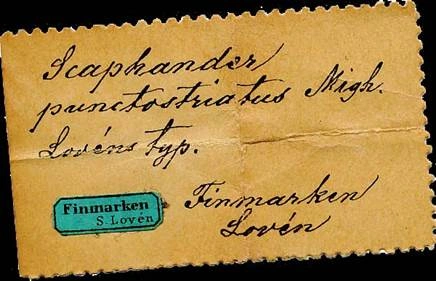 Scaphander
punctostriatus Migh.
Lovéns typ.
Finmarken
S. Lovén
Finmarken
Lovén